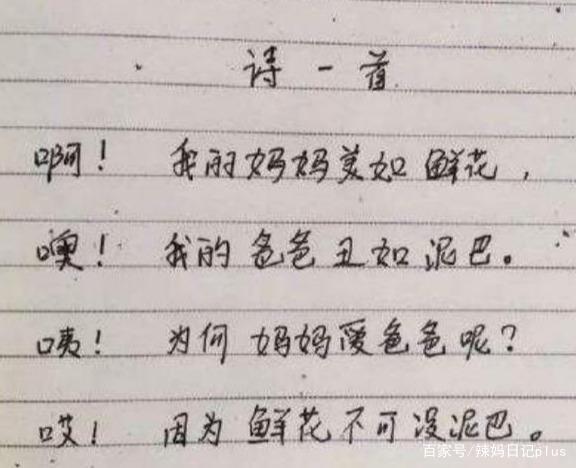 诗一首
啊！ 我的妈妈美如鲜花，
噢！ 我的爸爸丑如泥巴。
咦！ 为何妈妈爱爸爸呢？
哎！ 因为鲜花不可没泥巴。
百家号/辣妈日记plus